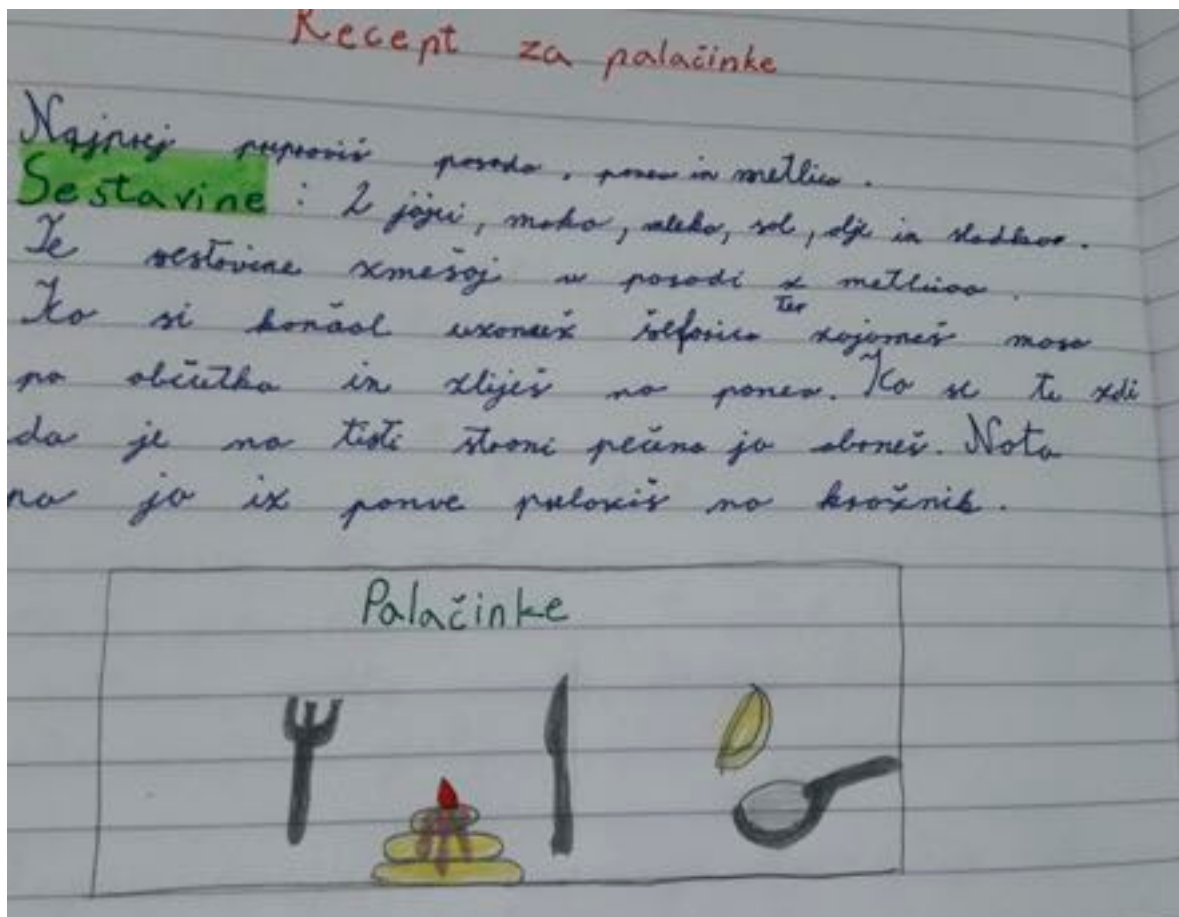 Recept za palačinke
Najprej pripraviš posodo, ponev in metlico.
Sestavine: 2 jajci, moko, mleko, sol, olje in sladkor.
Te sestavine zmešaj v posodi z metlico.
Ko si končal vzameš šefarico ter zajameš maso
po občutku in zliješ na ponev. Ko se te zdi
da je na tisti strani pečena jo obrneš. Nato
pa jo iz ponve preložiš na krožnik.
Palačinke